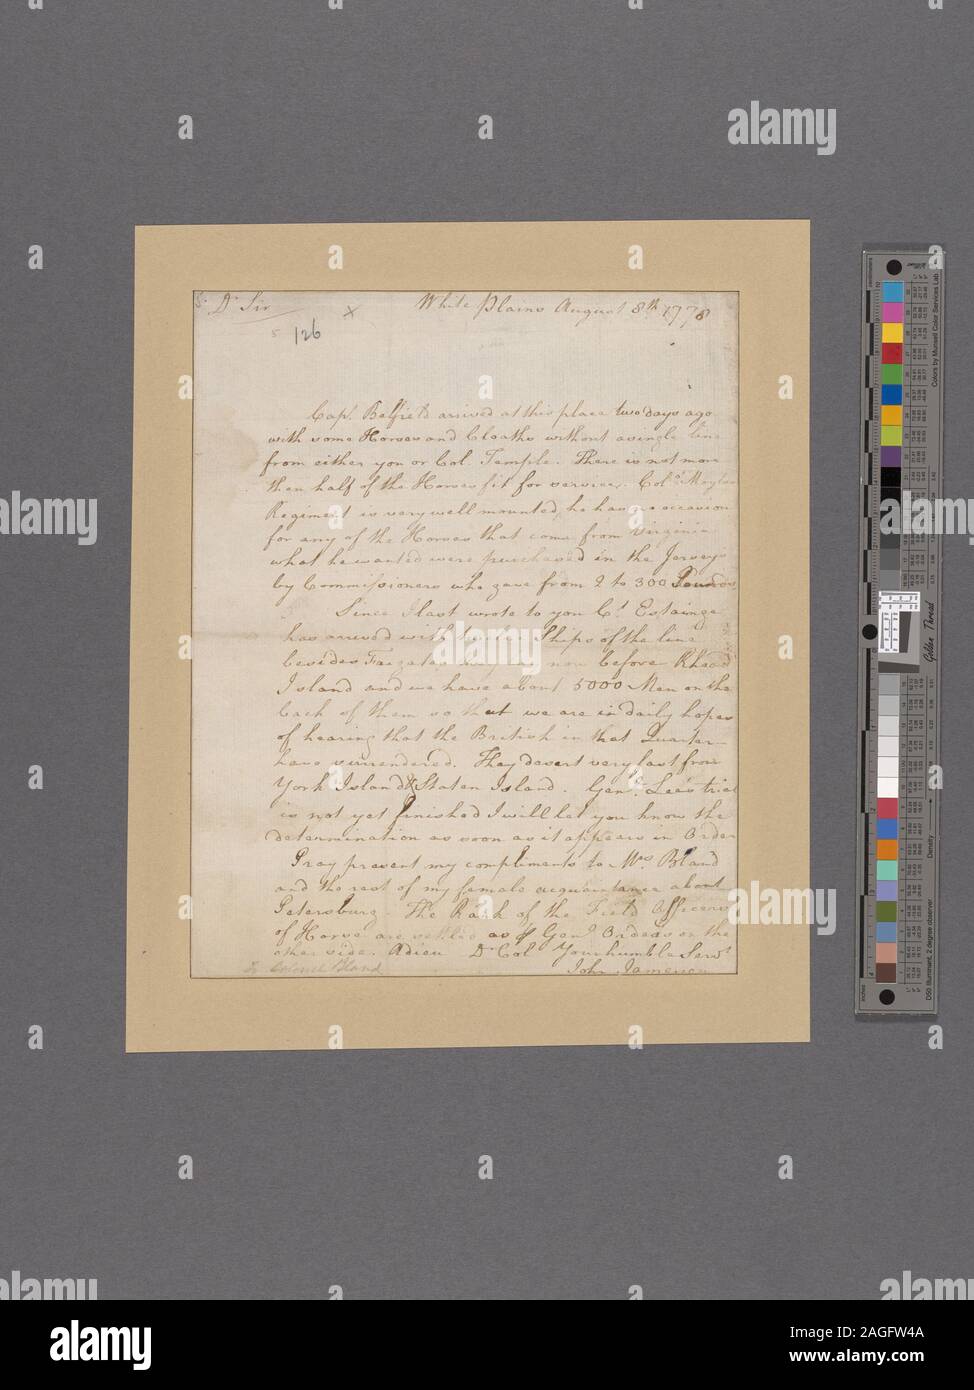 Dr Sir
White Plains August 8th 1778
126
Capt. Belfield arrived at this place two days ago
with some Horses and Cloaths without a single line
from either you or Col. Temple. There is not more
then half of the Horses fit for service. Colo. Moylan
Regiment is very well mounted, he has no occasion
for any of the Horses that come from Virginia
what he wanted were purchased in the Jerseys
by Commissioners who gave from 2 to 300 Pounds
Since I last wrote to you Ct. Estainge
has arrived with twelve Ships of the line
besides now before Rhoad
Island and we have about 5000 Men on the
back of them so that we are in daily hopes
of hearing that the British in that Quarter
have surrendered. They desert very fast from
York Island & Staten Island. Genl. Lee's trial
is not yet finished I will let you know the
determination as soon as it appears in Order
Pray present my compliments to Mrs Bland
and the rest of my female acquaintance about
Petersburg. The Rank of the Field Officers
of Horse are settled as Genl. Orders on the
other side. Adieu Dr Col Your humble Servt
To Colonel Bland
John Jameson
alamy
Image ID: 2AGFW4A
www.alamy.com